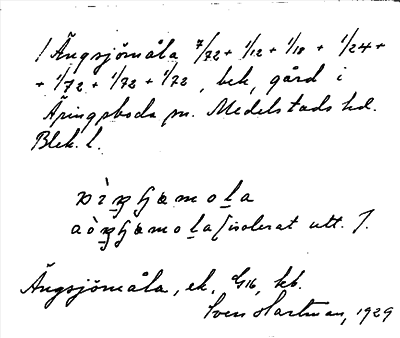 / Ängsjömåla 7/72 + 1/12 + 1/18 + 1/24 +
+ 1/72 + 1/72 + 1/72, bek, gård i
Äringsboda sn. Medelstads hd.
Blek. l.
mola
mola [isolerat utt.].
Ängsjömåla, ek, G16, kb.
Sven Hartman, 1929